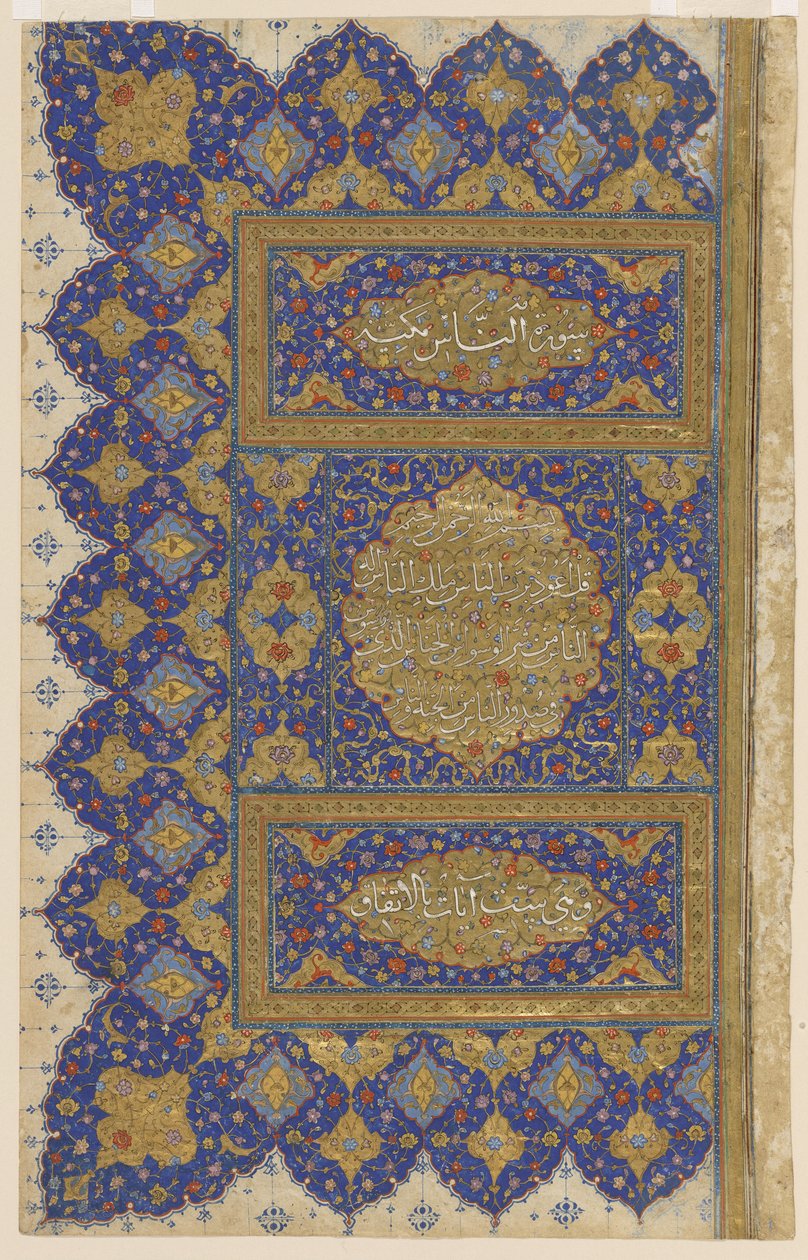 سورة الناس مكية
بسم الله الرحمن الرحيم
قل اعوذ برب الناس ملك الناس اله
الناس من شر الوسواس الخناس الذي يوسوس
في صدور الناس من الجنة والناس
وهي ست آيات بالاتفاق